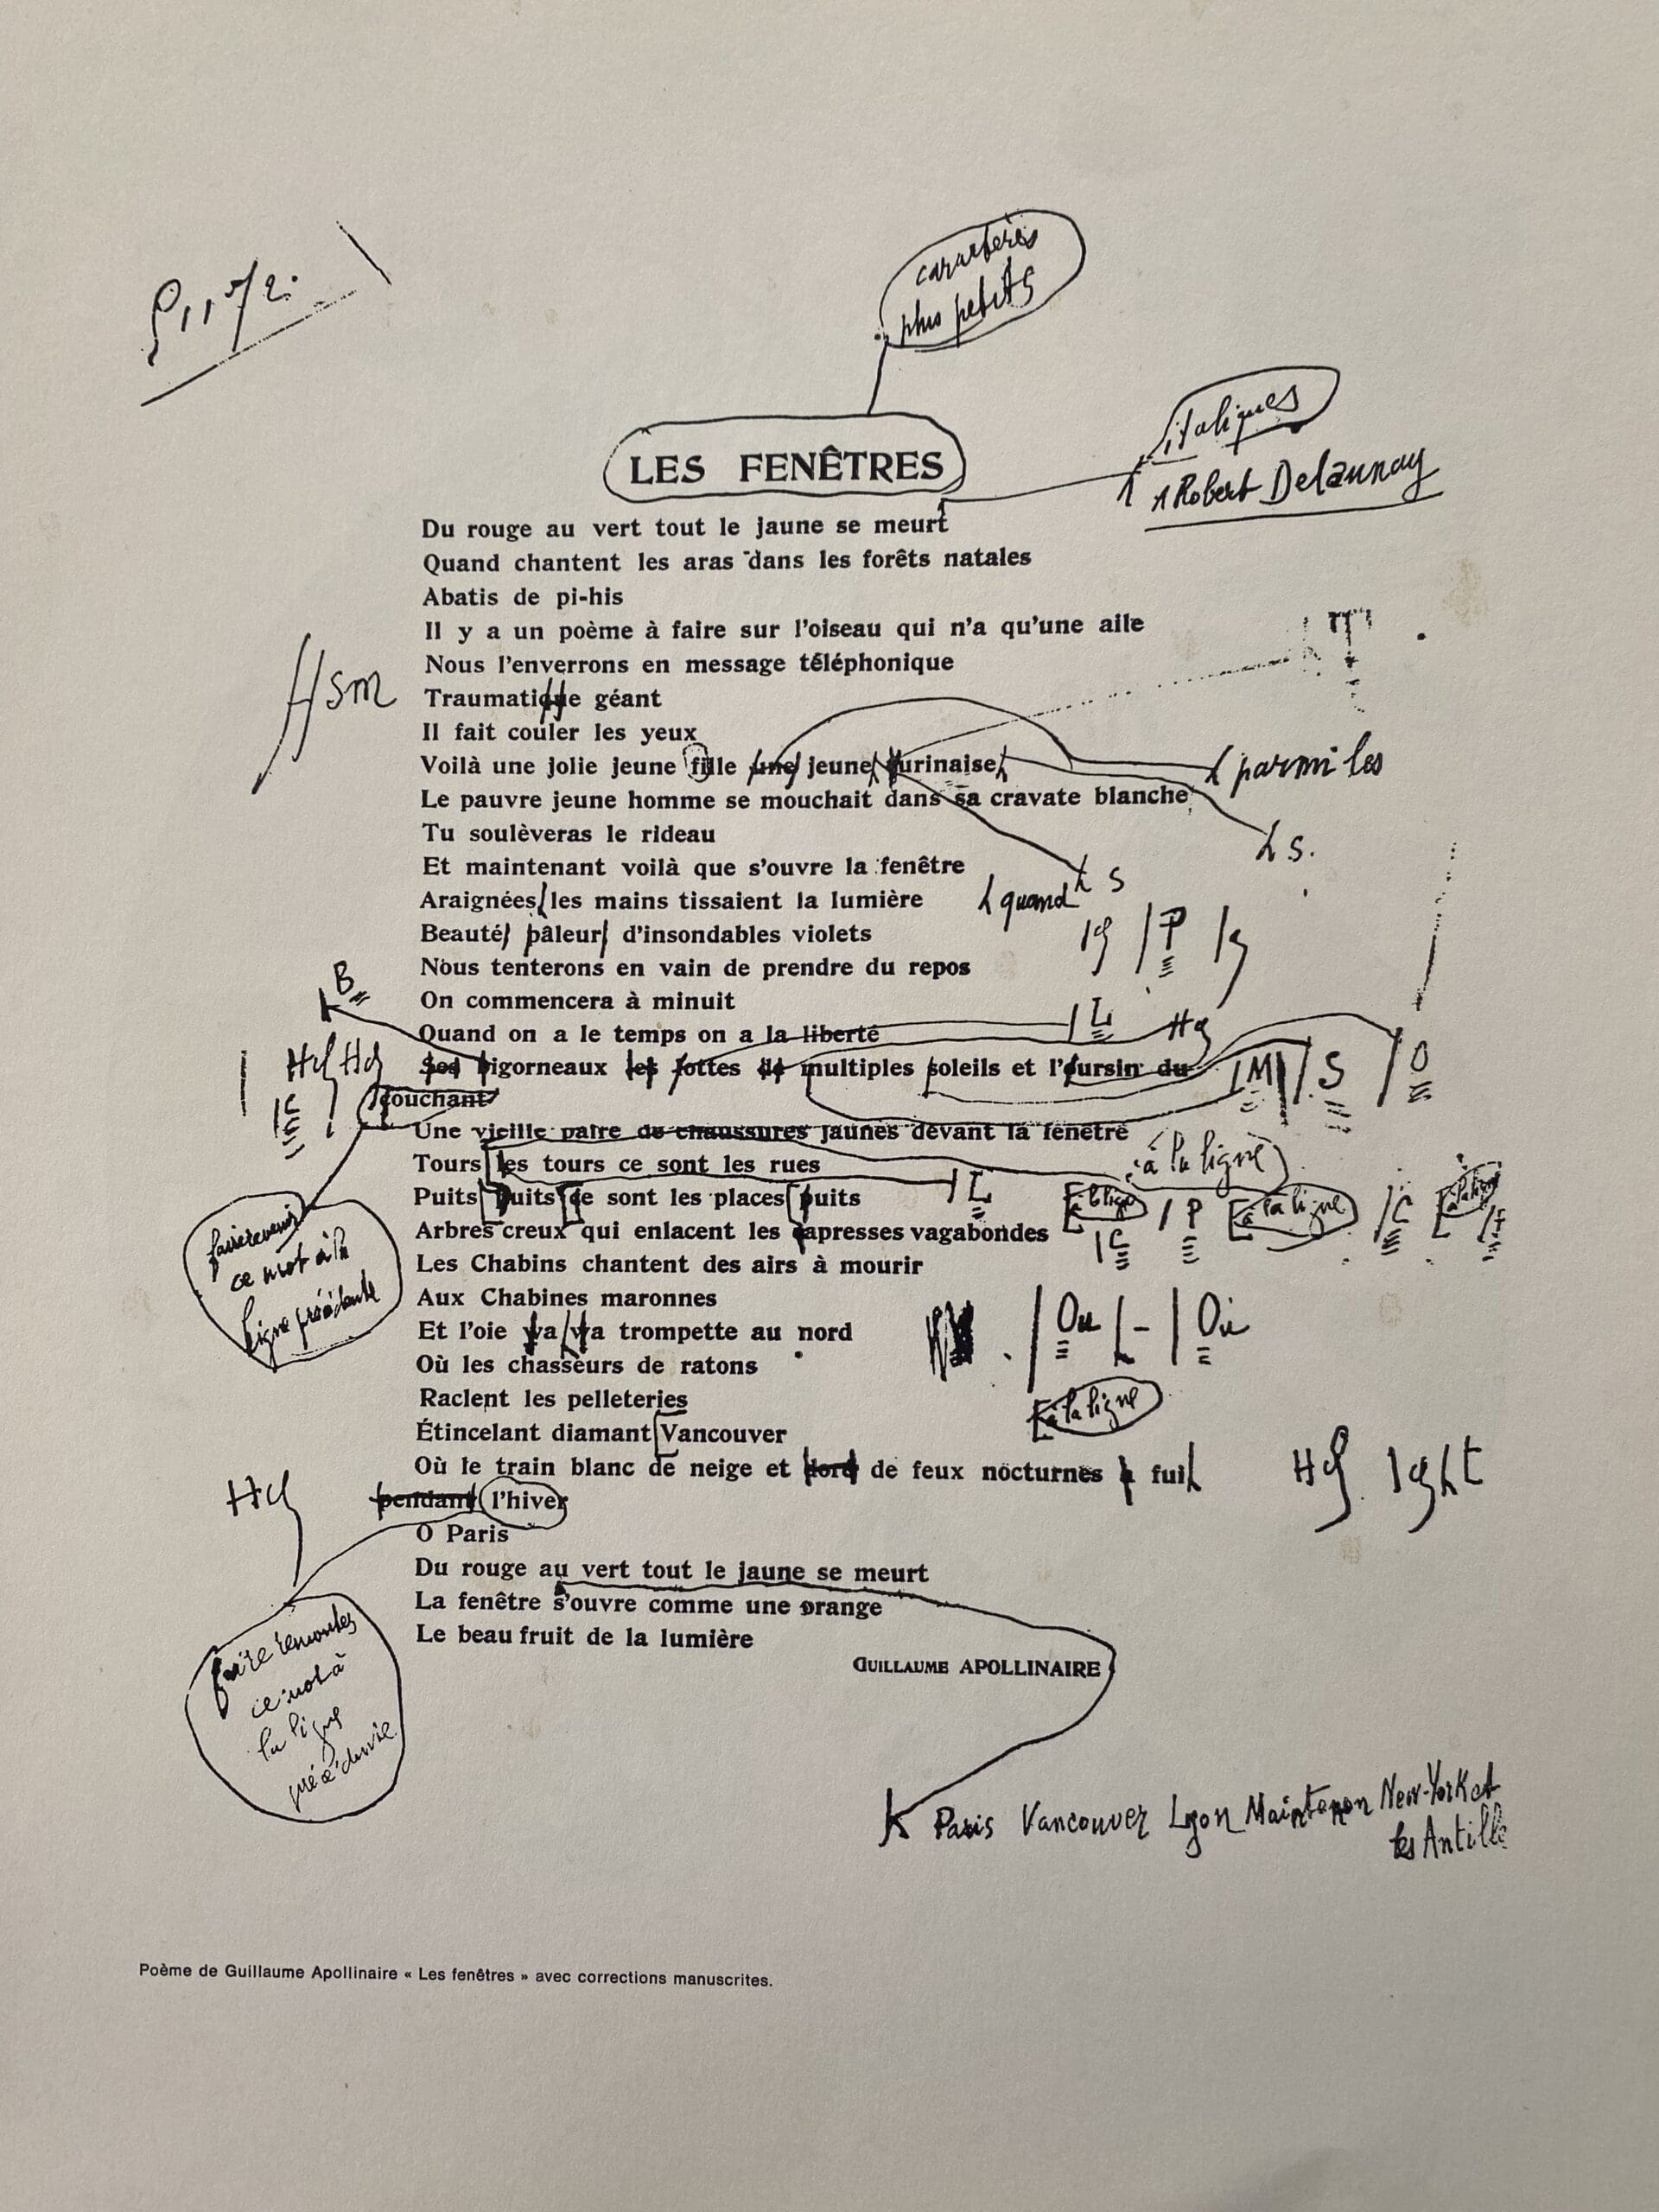 caractères
plus petits
italiques
Robert Delaunay
LES FENÊTRES
Du rouge au vert tout le jaune se meurt
Quand chantent les aras dans les forêts natales
Abatis de pi-his
Il y a un poème à faire sur l'oiseau qui n'a qu'une aile
Nous l'enverrons en message téléphonique
sm
Traumatique géant
Il fait couler les yeux
Voilà une jolie jeune fille une jeune turinaise
parmi les
Le pauvre jeune homme se mouchait dans sa cravate blanche
Tu soulèveras le rideau
s.
Et maintenant voilà que s'ouvre la fenêtre
s
Araignées les mains tissaient la lumière
quand
Beauté pâleur d'insondables violets
P
Nous tenterons en vain de prendre du repos
B
On commencera à minuit
Quand on a le temps on a la liberté
L
Ses bigorneaux les lottes de multiples soleils et l'oursin du
M S O
C
couchant
Une vieille paire de chaussures jaunes devant la fenêtre
à la ligne
Tours les tours ce sont les rues
L
Puits puits ce sont les places puits
à la ligne P à la ligne C à la ligne
Arbres creux qui enlacent les capresses vagabondes
C
faire revenir
ce mot à la
ligne précédente
Les Chabins chantent des airs à mourir
Aux Chabines maronnes
Et l'oie wa wa trompette au nord
Ou - Oi
Où les chasseurs de ratons
Raclent les pelleteries
à la ligne
Étincelant diamant Vancouver
Où le train blanc de neige et doré de feux nocturnes a fui
pendant l'hiver
O Paris
Du rouge au vert tout le jaune se meurt
La fenêtre s'ouvre comme une orange
Le beau fruit de la lumière
GUILLAUME APOLLINAIRE
faire remonter
ce mot à
la ligne
précédente
Paris Vancouver Lyon Maintenon New-York et
les Antilles
Poème de Guillaume Apollinaire « Les fenêtres » avec corrections manuscrites.